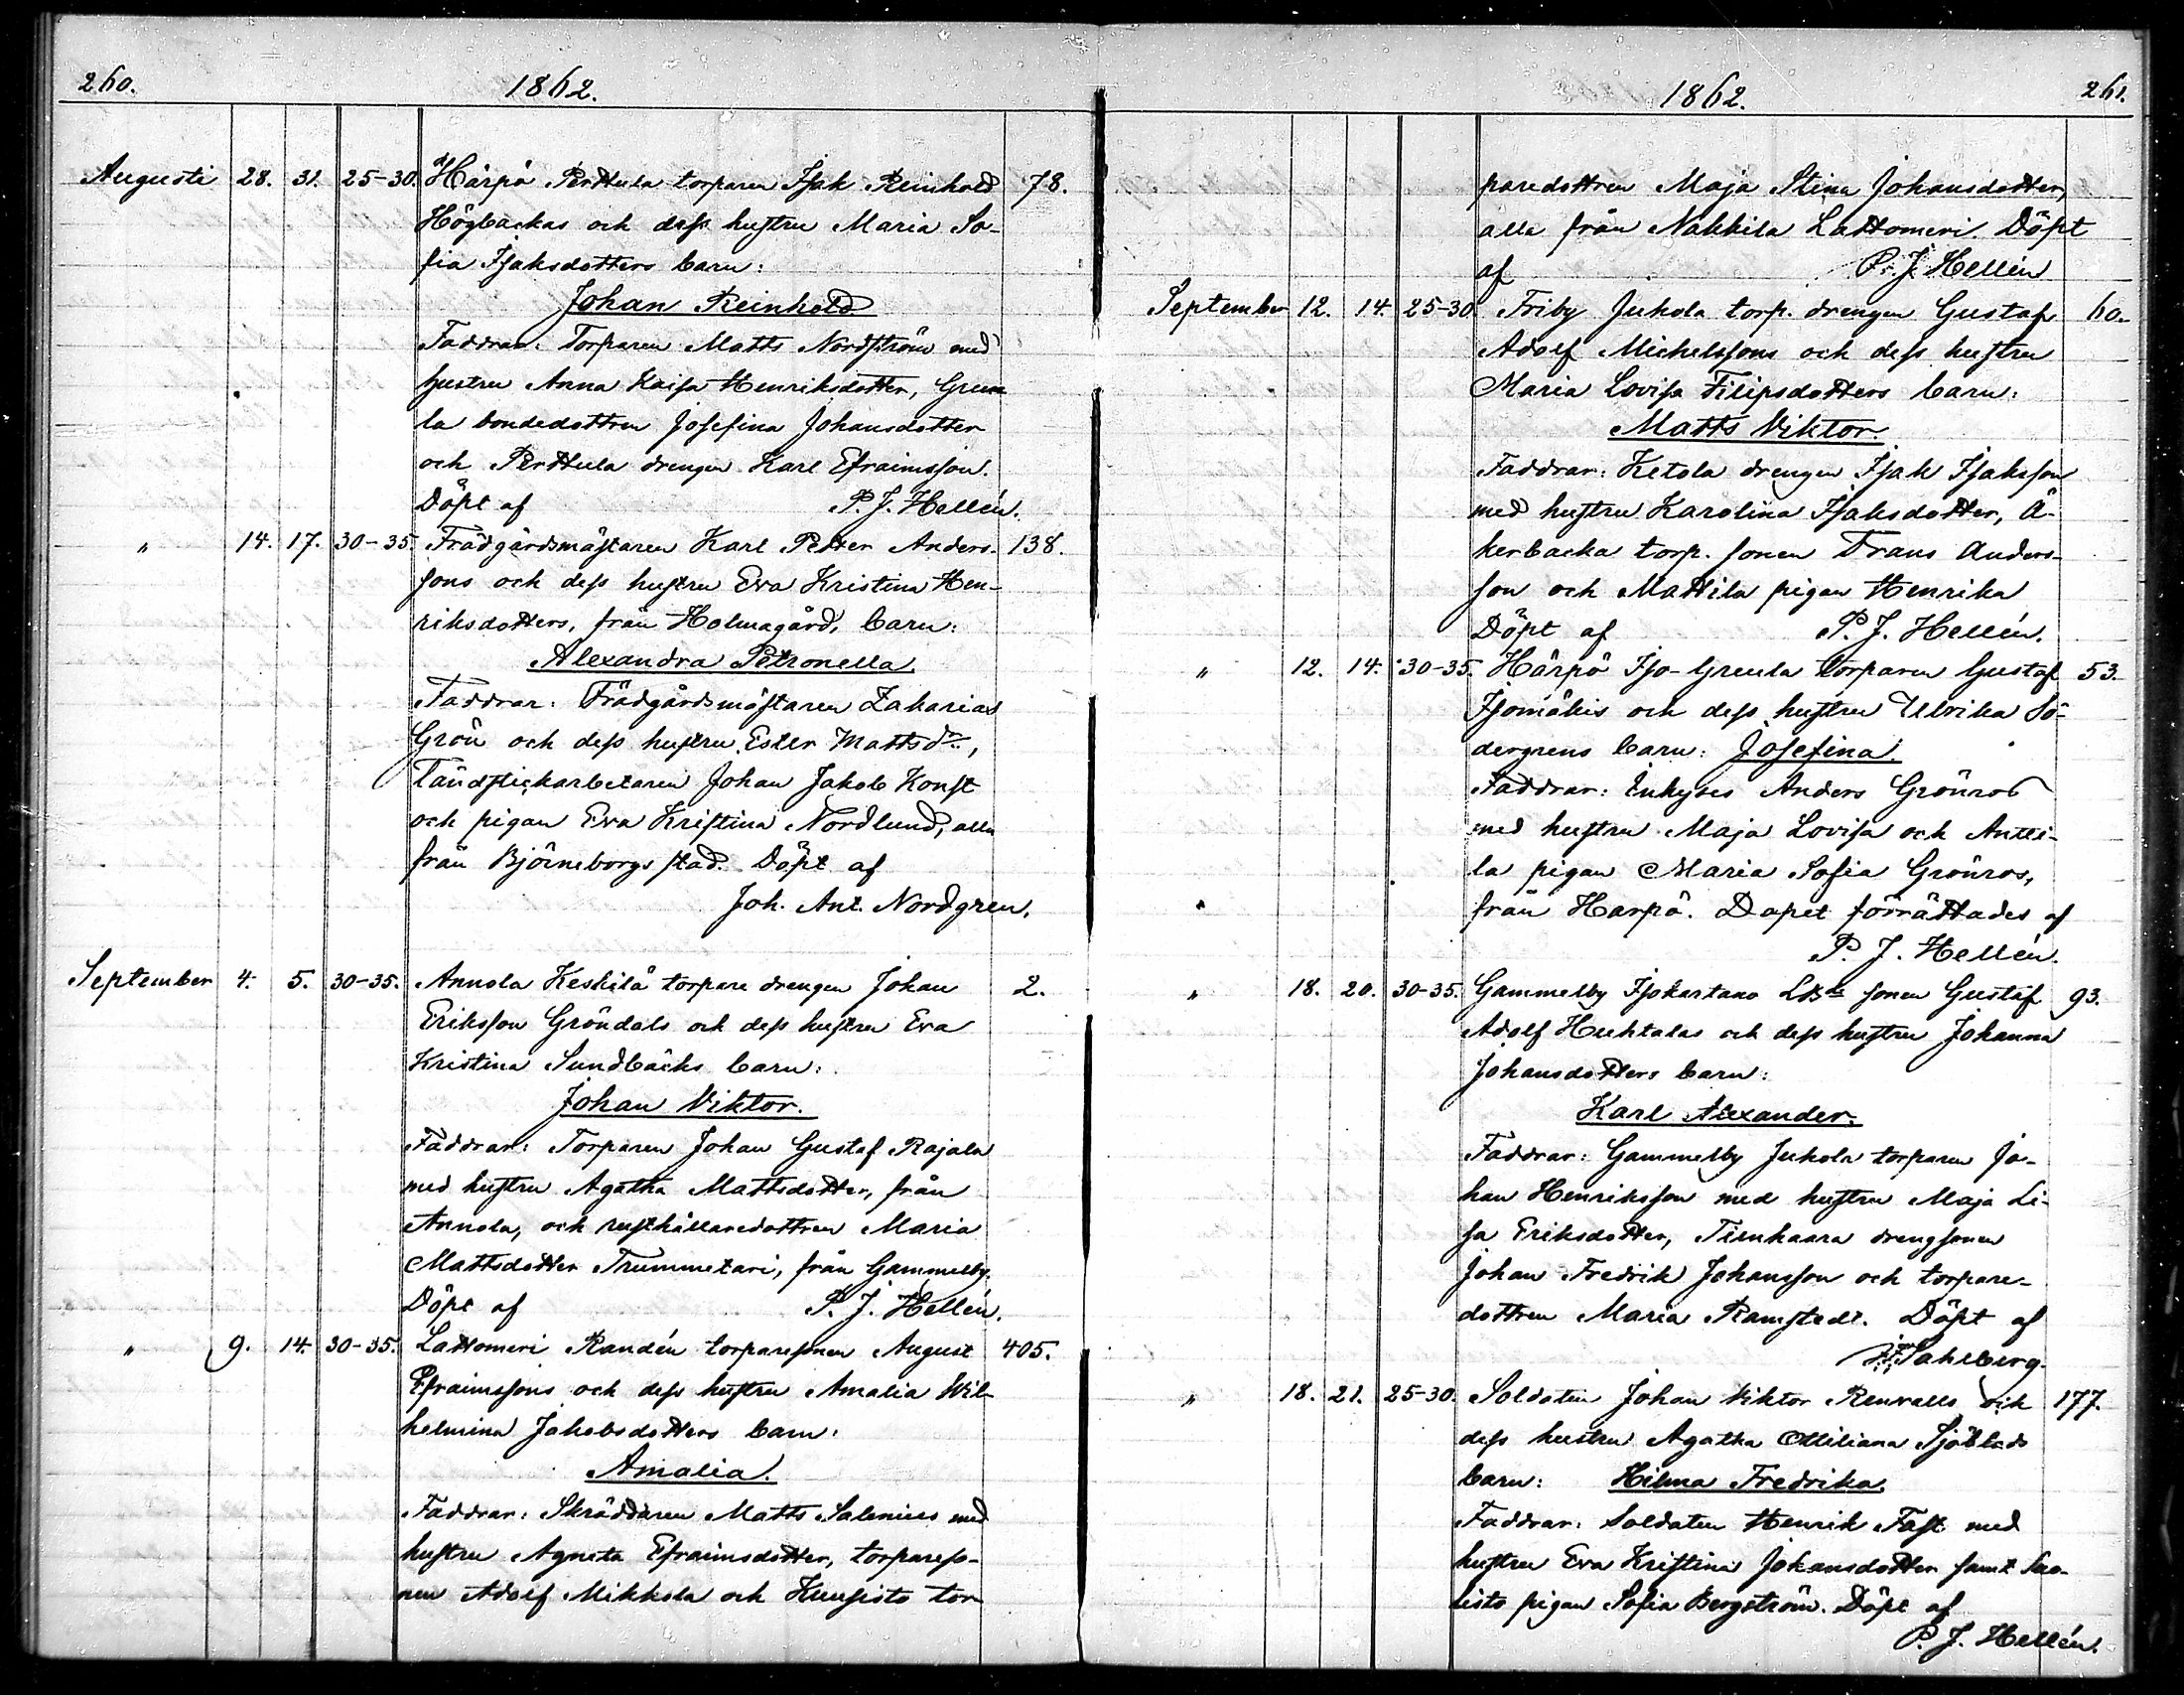 260. 1862.
Augusti 28. 31. 25-30. Härpö Perttula torparen Isak Reinhold 78.
Högbackas och dess hustru Maria So-
fia Isaksdotters barn:
Johan Reinhold
Faddrar: Torparen Matts Nordström med
hustru Anna Kaisa Henriksdotter, Greu
la bondedottren Josefina Johansdotter
och Perttula drengen Karl Efraimsson.
Döpt af P. J. Hellén.
" 14. 17. 30-35. Trädgårdsmästaren Karl Petter Anders- 138.
sons och dess hustru Eva Kristina Hen-
riksdotters, från Holmagård, barn:
Alexandra Petronella.
Faddrar: Trädgårdsmästaren Zakarias
Grön och dess hustru Ester Mattsdr,
Tändstickarbetaren Johan Jakob Konst
och pigan Eva Kristina Nordlund, alla
från Björneborgs stad. Döpt af
Joh. Ant. Nordgren.
September 4. 5. 30-35. Annola Keskilä torpare drengen Johan 2.
Eriksson Gröndals och dess hustru Eva
Kristina Sundbäcks barn:
Johan Viktor.
Faddrar: Torparen Johan Gustaf Rajala
med hustru Agatha Mattsdotter, från
Annola, och rusthållaredottren Maria
Mattsdotter Trummetari, från Gammelby.
Döpt af P. J. Hellén.
" 9. 14. 30-35. Lattomeri Randén torparesonen August 405.
Efraimssons och dess hustru Amalia Wil-
helmina Jakobsdotters barn:
Amalia.
Faddrar: Skräddaren Matts Salenius med
hustru Agneta Efraimsdotter, torpareso-
nen Adolf Mikkola och Kuusisto tor-
1862. 261.
paredottren Maja Stina Johansdotter,
alla från Nakkila Lattomeri. Döpt
af P. J. Hellén
September 12. 14. 25-30. Friby Jukola torp. drengen Gustaf 60.
Adolf Michelssons och dess hustru
Maria Lovisa Filipsdotters barn:
Matts Viktor.
Faddrar: Ketola drengen Isak Isaksson
med hustru Karolina Isaksdotter, Å-
kerbacka torp. sonen Frans Anders-
son och Mattila pigan Henrika
Döpt af P. J. Hellén.
" 12. 14. 30-35. Härpö Iso-Greula torparen Gustaf 53.
Isomäkis och dess hustru Ulrika Sö-
dergrens barn: Josefina.
Faddrar: Inhyses Anders Grönros
med hustru Maja Lovisa och Antti-
la pigan Maria Sofia Grönros,
från Harpö. Dopet förrättades af
P. J. Hellén.
" 18. 20. 30-35. Gammelby Isokartano sonen Gustaf 93.
Adolf Huhtalas och dess hustru Johanna
Johansdotters barn:
Karl Alexander.
Faddrar: Gammelby Jukola torparen Jo-
han Henriksson med hustru Maja Li-
sa Eriksdotter, Tiinhaara drengsonen
Johan Fredrik Johansson och torpare-
dottren Maria Ramstedt. Döpt af
Sahlberg.
" 18. 21. 25-30. Soldaten Johan Viktor Renvalls och 177.
dess hustru Agatha Ottiliana Sjöblads
barn: Hilma Fredrika.
Faddrar: Soldaten Henrik Fast med
hustru Eva Kristina Johansdotter samt Saa-
risto pigan Sofia Bergström. Döpt af
P. J. Hellén.